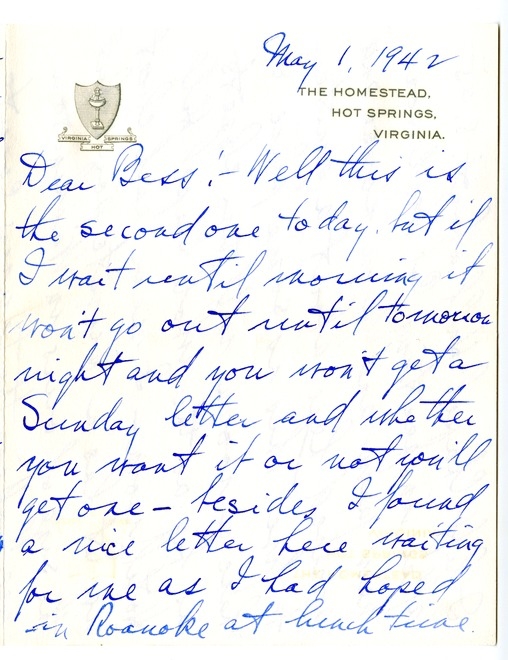 May 1, 1942
THE HOMESTEAD,
HOT SPRINGS,
VIRGINIA.
VIRGINIA HOT SPRINGS
Dear Bess:- Well this is
the second one today. but if
I wait until morning it
won't go out until tomorrow
night and you won't get a
Sunday letter and whether
you want it or not you'll
get one - besides I found
a nice letter here waiting
for me as I had hoped
in Roanoke at lunch time.